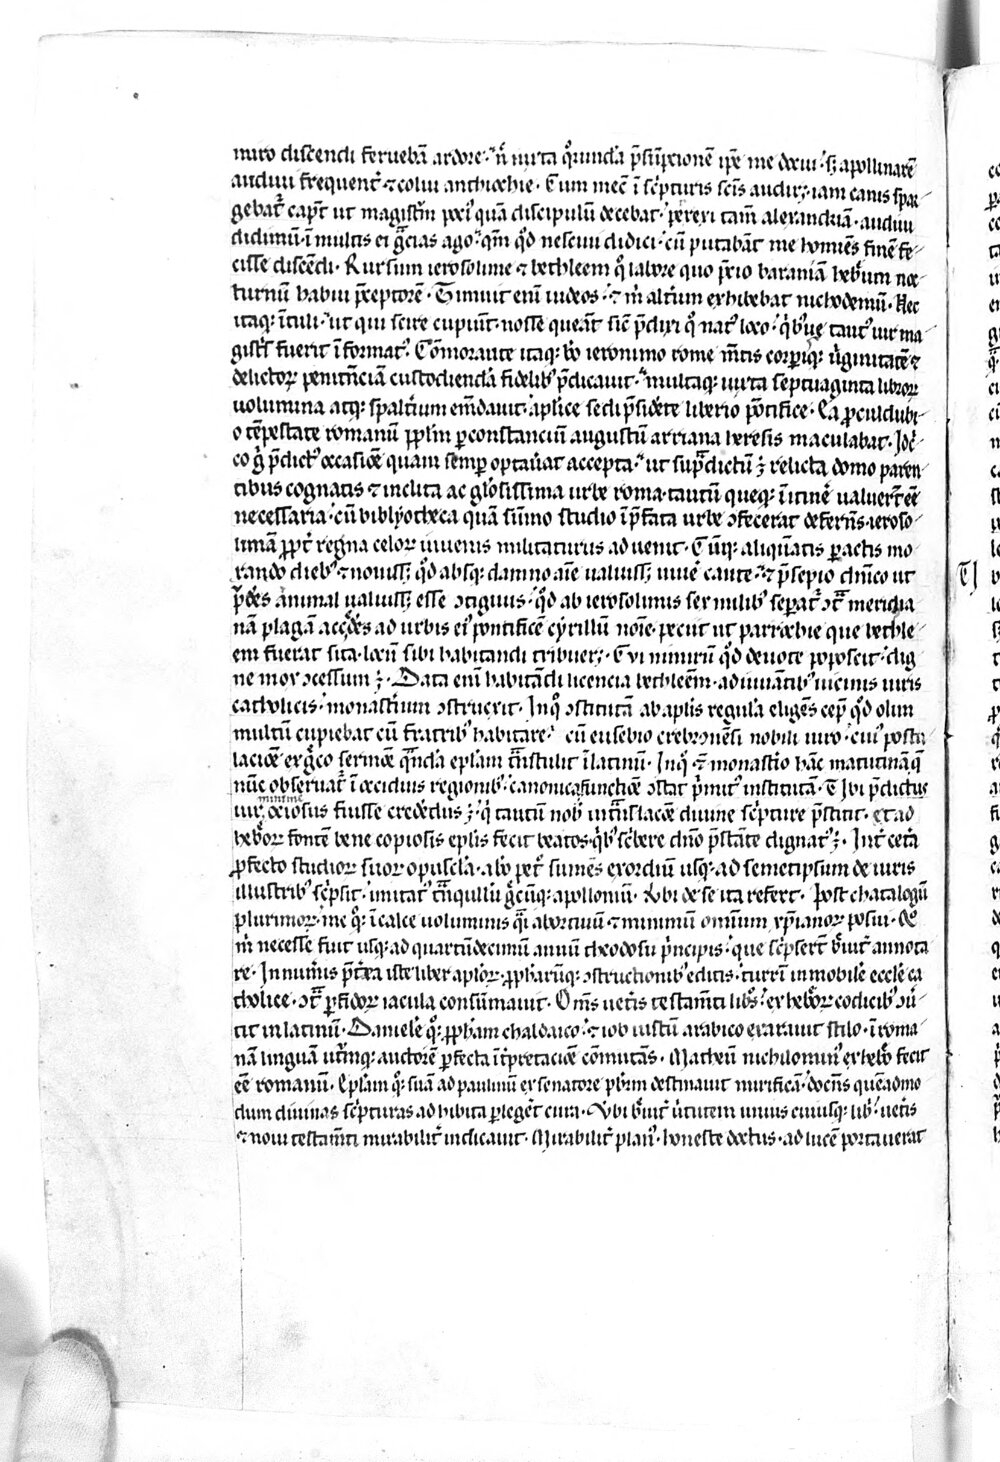 miro discendi feruebā ardore. n̄ iuxta q̄rundā p̄sūpcionē ip̄e me docui. sꝫ apollinarē
audiui frequent̄ ⁊ colui anthiochie. Cum mec̄ ī sc̄pturis scīs audirꝫ. iam canis spar
gebat̄ cap̄t ut magistrū pocī quā discipulū decebat. perrexi tam̄ alexandriā. audiui
didimū. ī multis ei gr̄cias ago. qm̄ qd̄ nesciui didici. cū putabāt me homīes finē fe
cisse discēdi. Rursum ierosolime ⁊ bethleem qͦ labore quo p̄cio baraniā hebr̄um noc
turnū habui p̄ceptorē. Timuit enī iudeos. ⁊ m̄ alt̄ium exhibebat nichodemū. Hec
itaqꝫ ītuli. ut qui scire cupiūt. nosse queāt sic̄ p̄dixi qͦ nat᷒ loco. qͥb᷒ue tant᷒ uir ma
gistr̄ fuerit īformat᷒. Cōmorante itaqꝫ bt̄o ieronimo rome mētis corp̄iqꝫ uͥginitatē ⁊
delictoꝝ penitēciā custodiendā fidelib᷒ p̄dicauit. multaqꝫ iuxta septuaginta libroꝝ
uolumina atqꝫ spalt̄ium em̄dauit. aplīce sedi p̄sidēte liberio pōtifice. Ea ꝓculdubi
o tēpestate romanū pplm̄ ꝑ constanciū augustū arriana heresis maculabat. Idcͥ
co gͦ p̄dict᷒ occasiōe quam semꝑ optauāt accepta. ut sup̄dictū ꝫ relicta domo paren
tibus cognatis ⁊ inclita ac glōsissima urbe roma. tantū queqꝫ ītinē ualuer̄t eē
necessaria. cū bibliotheca quā sūmo studio ī p̄fata urbe ɔfecerat deferēs. ieroso
limā ꝓpt̄ regna celoꝝ iuuenis militaturus aduenit. Cūqꝫ aliquātis ꝑactis mo
rando dieb᷒ ⁊ nouissꝫ qd̄ absqꝫ damno aīe ualuissꝫ uiuē caute. ⁊ p̄sepio dn̄ico ut
p̄dēs animal ualuissꝫ esse ɔtiguus. qd̄ ab ierosolimis sex milib᷒ separat̄ ɔt̄ meridia
nā plagā accēdēs ad urbis ei᷒ pontificē cyrillū noīe. peciit ut parrochie que bethle
em fuerat sita. locū sibi habitandi tribuerꝫ. Cui nimirū qd̄ deuote poposcit. dig
ne mox ɔcessum ꝫ. Data enī habitādi licencia bethleēm. adiuuātib᷒ uicinis uiris
catholicis. monast̄ium ɔstruxit. In qͦ ɔstitutā ab aplīs regulā eligēs cep̄ qd̄ olim
multū cupiebat cū fratrib᷒ habitare. cū eusebio crebronēsi nobili uiro. cui᷒ postu
laciōe ex gͤco sermōe quandā eplām tn̄stulit ī latinū. In qͦ ⁊ monast̄io hāc matutinā q̄
nūc obseruat̄ ī occiduis regionib᷒. canonica functiōe ɔstat p̄mit᷒ institutā. Ibi p̄dictus
uir minime ociosus fuisse credēdus ꝫ. qͥ tantū nob᷒ ī tn̄slacōe diuine sc̄pture p̄stitit. et ad
hebr̄oꝝ fontē bene copiosis eplīs fecit beatos. qͥb᷒ sc̄bere dn̄o p̄stāte dignat᷒ ꝫ. Int̄ cet̄a
ꝓfecto studioꝝ suoꝝ opuscula. abo pet̄ sumēs exordiū usqꝫ ad semetipsum de uiris
illustrib᷒ sc̄psit. imitat᷒ tn̄quillū gͤcūqꝫ apolloniū. Ubi de se ita refert. Post chatalogū
plurimoꝝ. me qͦqꝫ ī calce uoluminis qͣi abortiuū ⁊ minimū omnium xp̄ianoꝝ posui. Qͦ
m̄ necesse fuit usqꝫ ad quartūdecimū annū theodosii p̄ncipis. que sc̄pser̄t bͤuit̄ annota
re. Innum̄is p̄t̄ea iste liber aploꝝ. ꝓphāꝝqꝫ ɔstructionib᷒ editis. turrī inmobilē ecclē ca
tholice. ɔt̄ ꝑfidoꝝ iacula consūmauit. Om̄s uet̄is testam̄ti libͦs. ex hebr̄oꝝ codicib᷒ ɔuͤ
tit in latinū. Danielē qͦqꝫ ꝓphām chaldaico. ⁊ iob iustū arabico exarauit stilo. ī roma
nā linguā ut̄mqꝫ auctorē ꝑfecta īt̄pretaciōe cōmutās. Matheū nichilomin᷒ ex hebr̄o fecit
eē romanū. Eplām qͦqꝫ suā ad paulinū ex senatore pbr̄m destinauit mirificā. docēs queādmo
dum diuinas sc̄pturas adhibita ꝑleget̄ cura. Ubi bͤuit̄ uͥtutem unius cuiusqꝫ libͥ. uet̄is
⁊ noui testam̄ti mirabilit̄ indicauit. Mirabilit̄ plan᷒. honeste doctus. ad lucē portauerat